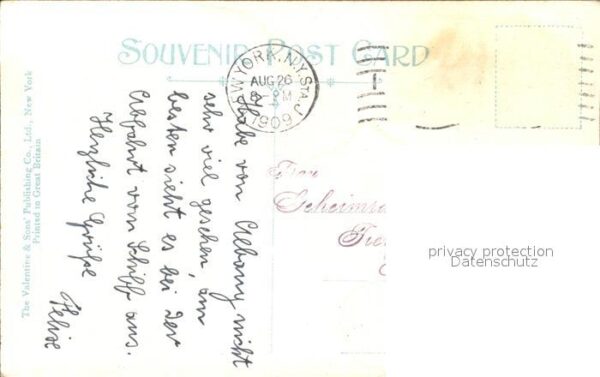 SOUVENIR POST CARD
NEW YORK, N.Y. STA. J
AUG 26
8 - M
1909
Habe von Albany nicht
sehr viel gesehen, am
besten sieht es bei der
Abfahrt vom Schiff aus.
Herzliche Grüße
Felix
Frau
The Valentine & Sons' Publishing Co., Ltd., New York
Printed in Great Britain
privacy protection
Datenschutz